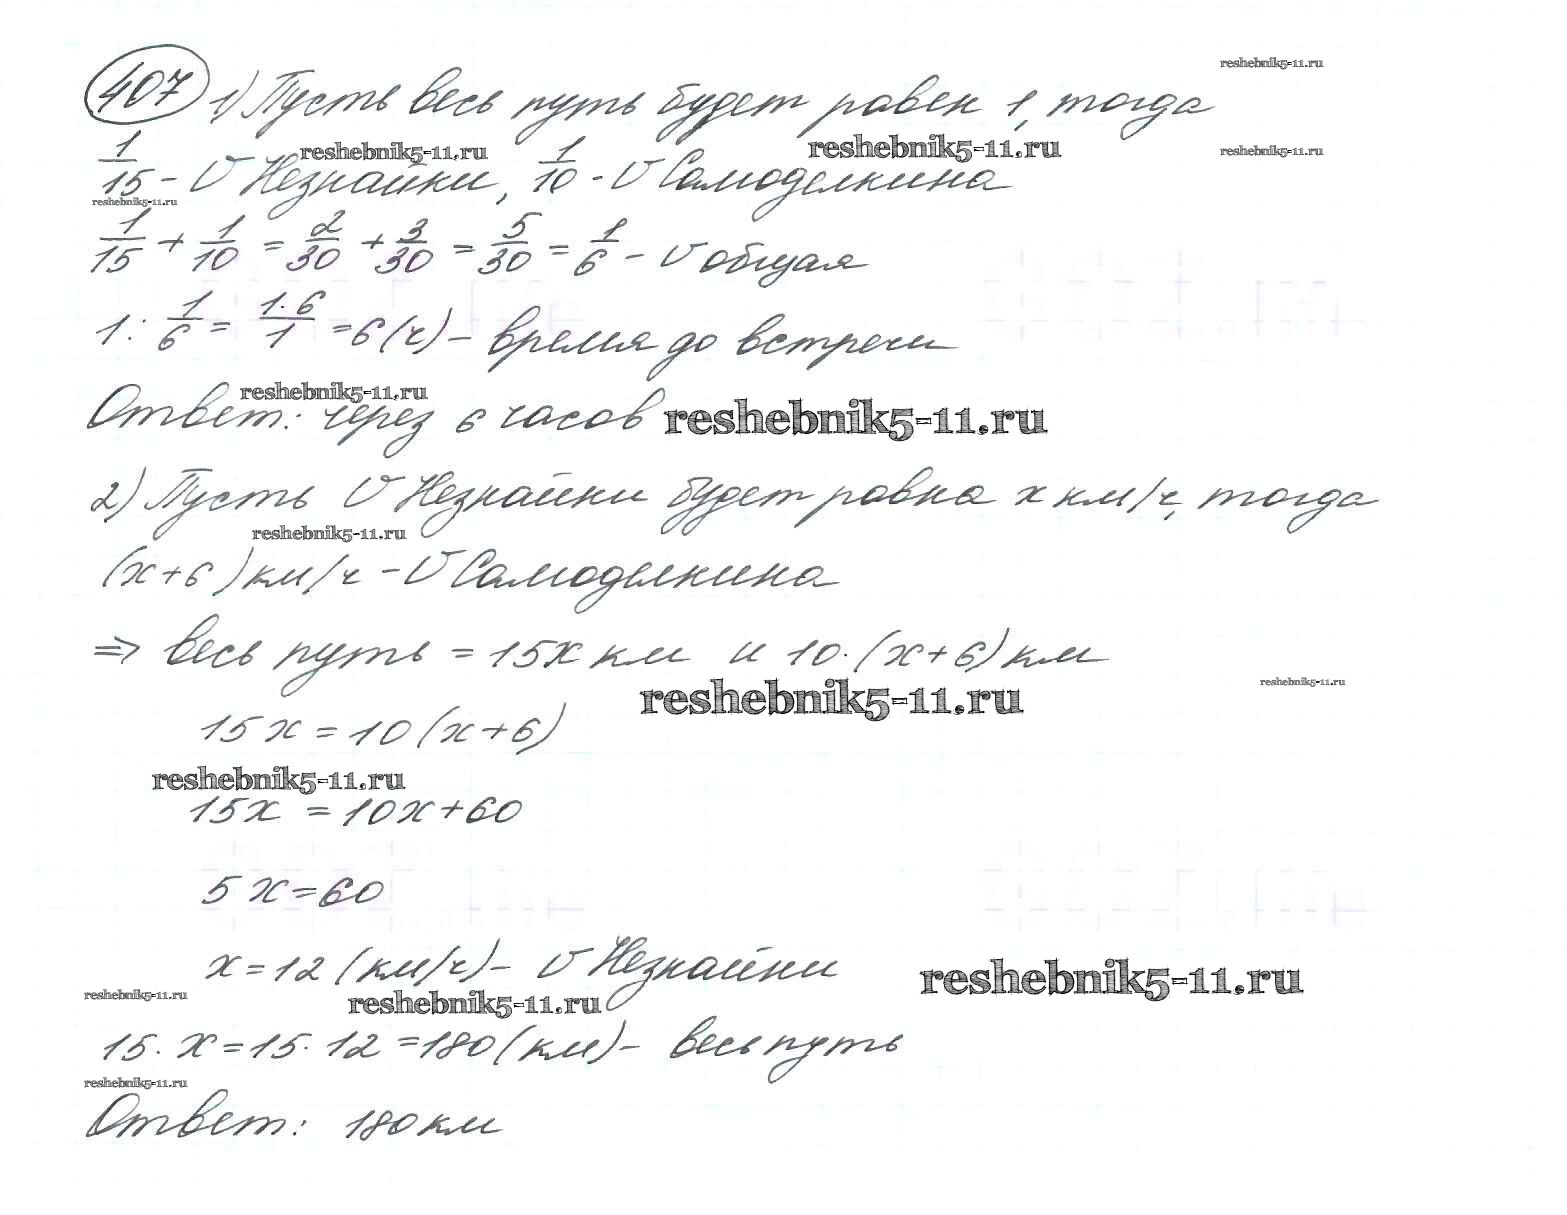 407 1) Пусть весь путь будет равен 1, тогда
reshebnik5-11.ru
reshebnik5-11.ru reshebnik5-11.ru reshebnik5-11.ru
1/15 - V Незнайки, 1/10 - V Самоделкина
reshebnik5-11.ru
1/15 + 1/10 = 2/30 + 3/30 = 5/30 = 1/6 - V общая
1 : 1/6 = 1·6/1 = 6 (ч) - время до встречи
reshebnik5-11.ru
Ответ: через 6 часов
reshebnik5-11.ru
2) Пусть V Незнайки будет равна x км/ч, тогда
reshebnik5-11.ru
(x+6) км/ч - V Самоделкина
⇒ весь путь = 15x км и 10·(x+6) км
reshebnik5-11.ru
reshebnik5-11.ru
15x = 10(x+6)
reshebnik5-11.ru
15x = 10x+60
5x=60
x=12 (км/ч) - V Незнайки
reshebnik5-11.ru
reshebnik5-11.ru reshebnik5-11.ru
15·x=15·12=180 (км) - весь путь
reshebnik5-11.ru
Ответ: 180 км